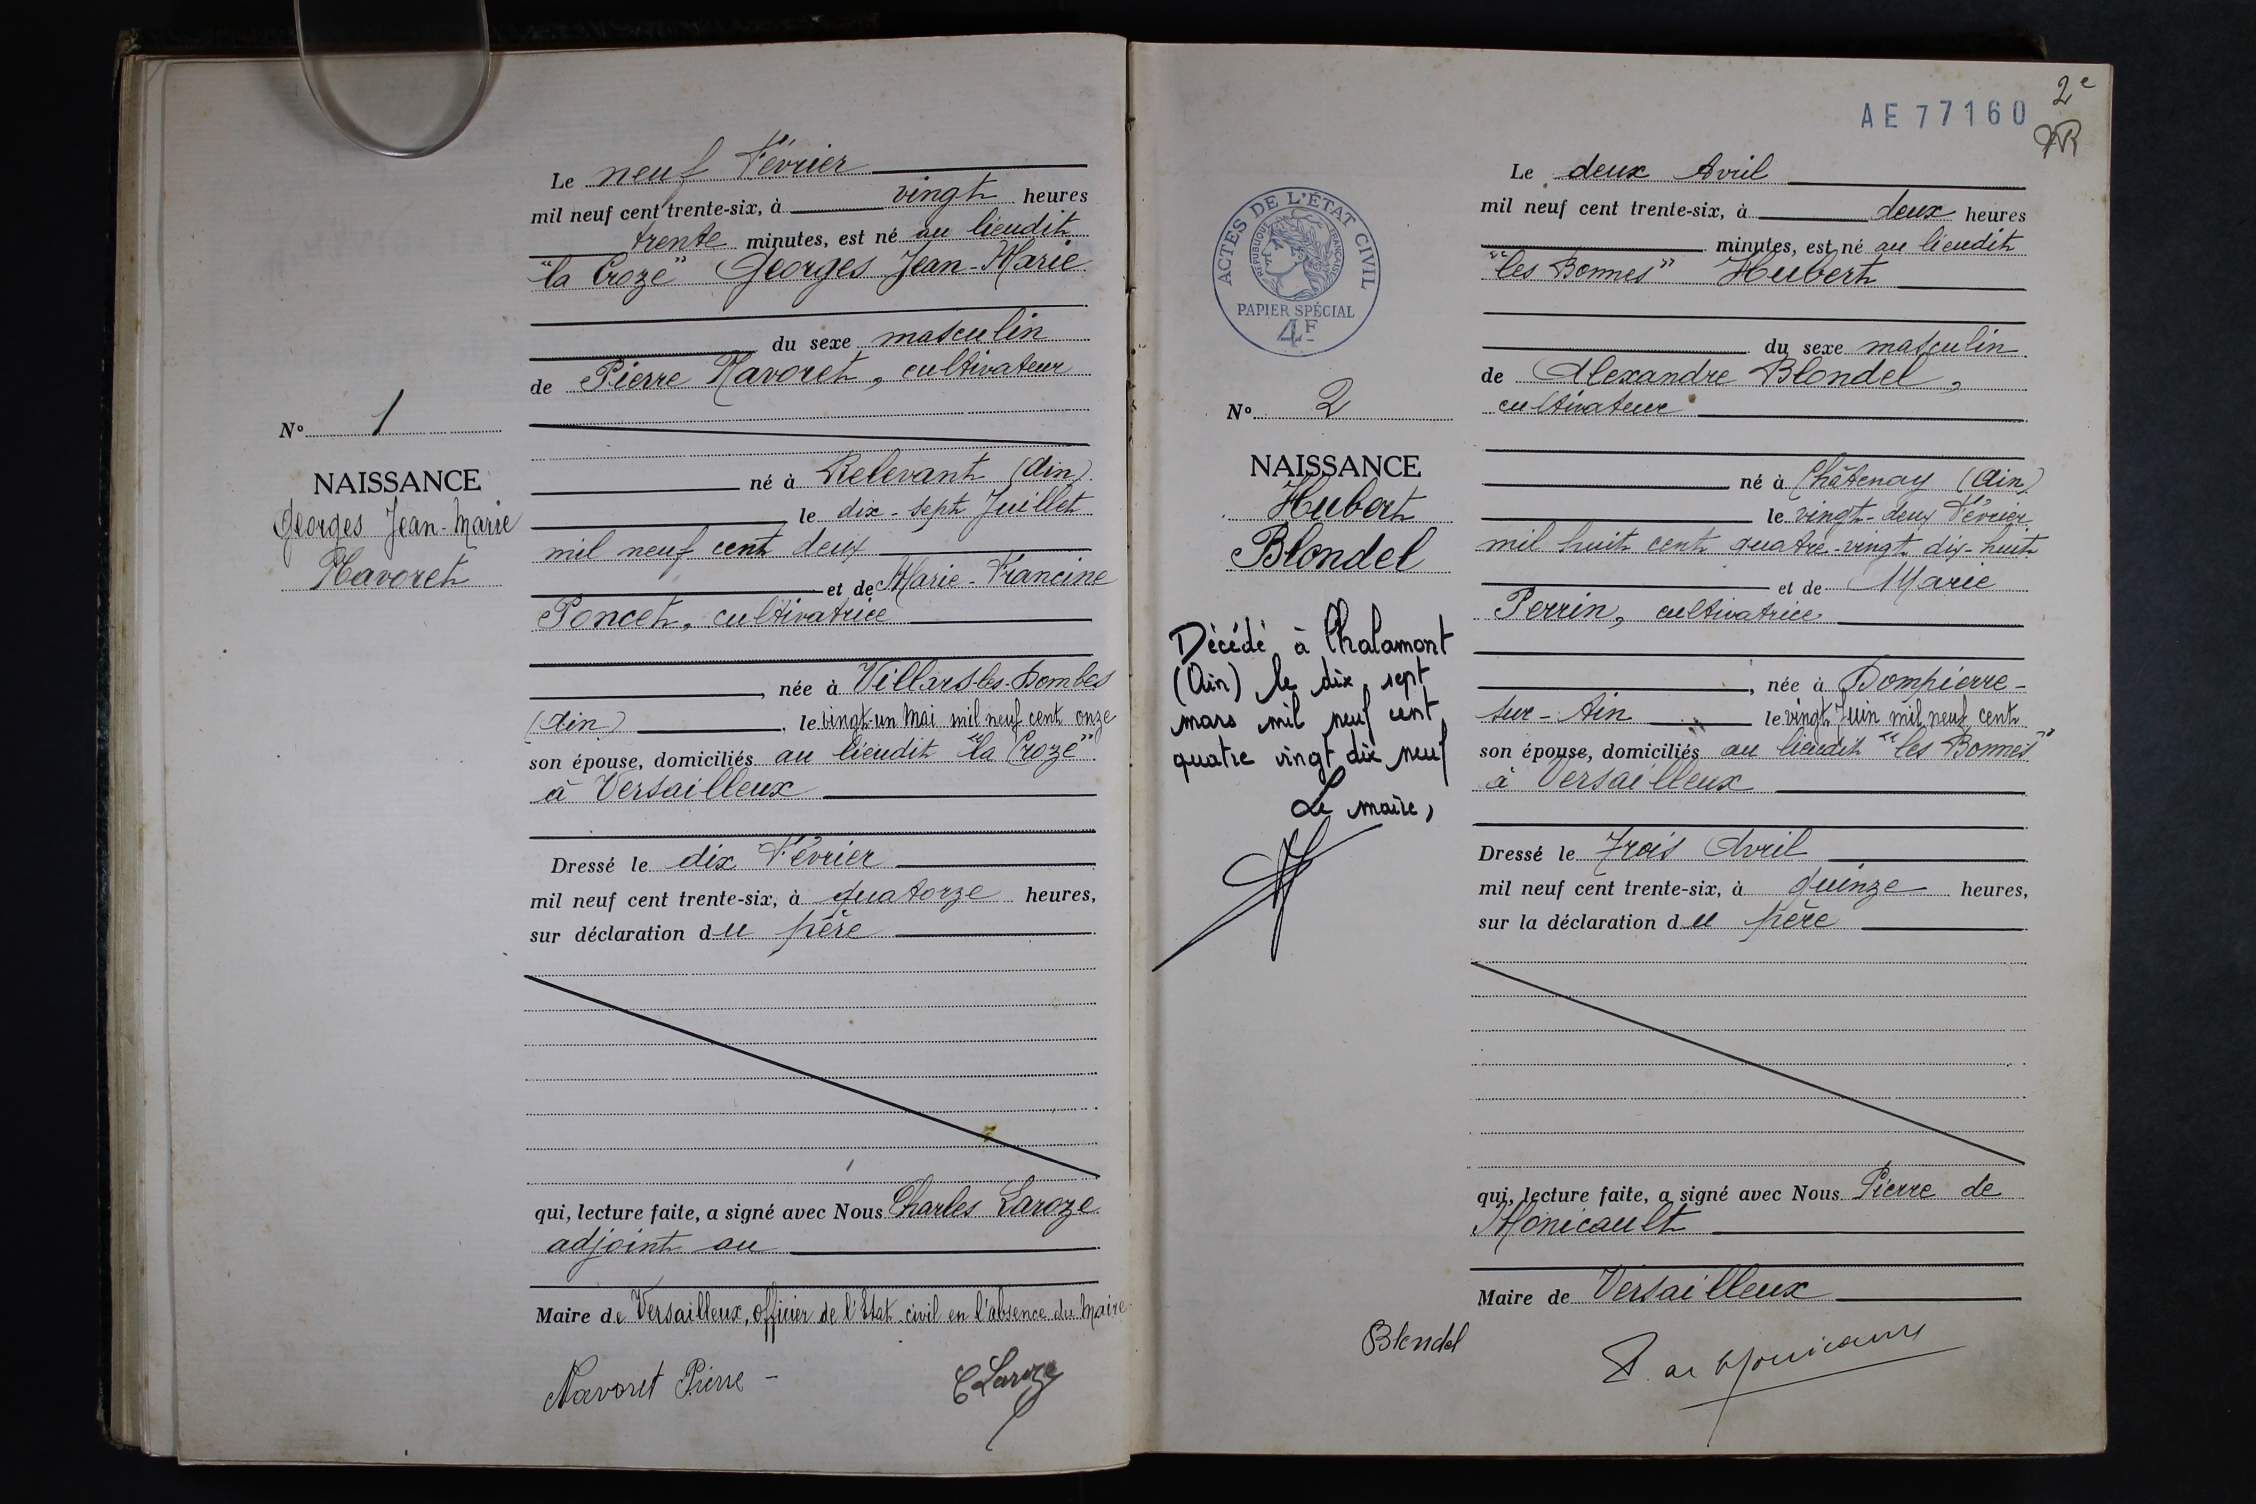 Le neuf Février
mil neuf cent trente-six, à vingt heures
trente minutes, est né au lieudit
"la Croze" Georges Jean-Marie
du sexe masculin
de Pierre Navoret, cultivateur
né à Relevant (Ain)
le dix-sept Juillet
mil neuf cent deux
et de Marie-Francine
Poncet, cultivatrice
, née à Villars-les-Dombes
(Ain) , le vingt-un Mai mil neuf cent onze
son épouse, domiciliés au lieudit "la Croze"
à Versailleux
Dressé le dix Février
mil neuf cent trente-six, à quatorze heures,
sur déclaration du père
qui, lecture faite, a signé avec Nous Charles Laroze
adjoint au
Maire de Versailleux, officier de l'Etat-civil en l'absence du Maire
Navoret Pierre -
C Laroze
No 1
NAISSANCE
Georges Jean-Marie
Navoret
2e
AE 77160
ACTES DE L'ÉTAT CIVIL
RÉPUBLIQUE FRANÇAISE
PAPIER SPÉCIAL
4F
No 2
NAISSANCE
Hubert
Blondel
Décédé à Chalamont
(Ain) le dix sept
mars mil neuf cent
quatre vingt dix neuf
Le maire,
Le deux Avril
mil neuf cent trente-six, à deux heures
minutes, est né au lieudit
"les Bonnes" Hubert
du sexe masculin
de Alexandre Blondel,
cultivateur
né à Châtenay (Ain)
le vingt-deux Février
mil huit cent quatre-vingt-dix-huit
et de Marie
Perrin, cultivatrice
, née à Dompierre-
sur-Ain le vingt Juin mil neuf cent
son épouse, domiciliés au lieudit "les Bonnes"
à Versailleux
Dressé le Trois Avril
mil neuf cent trente-six, à quinze heures,
sur la déclaration du père
qui, lecture faite, a signé avec Nous Pierre de
Monicault
Maire de Versailleux
Blondel
P. de Monicault